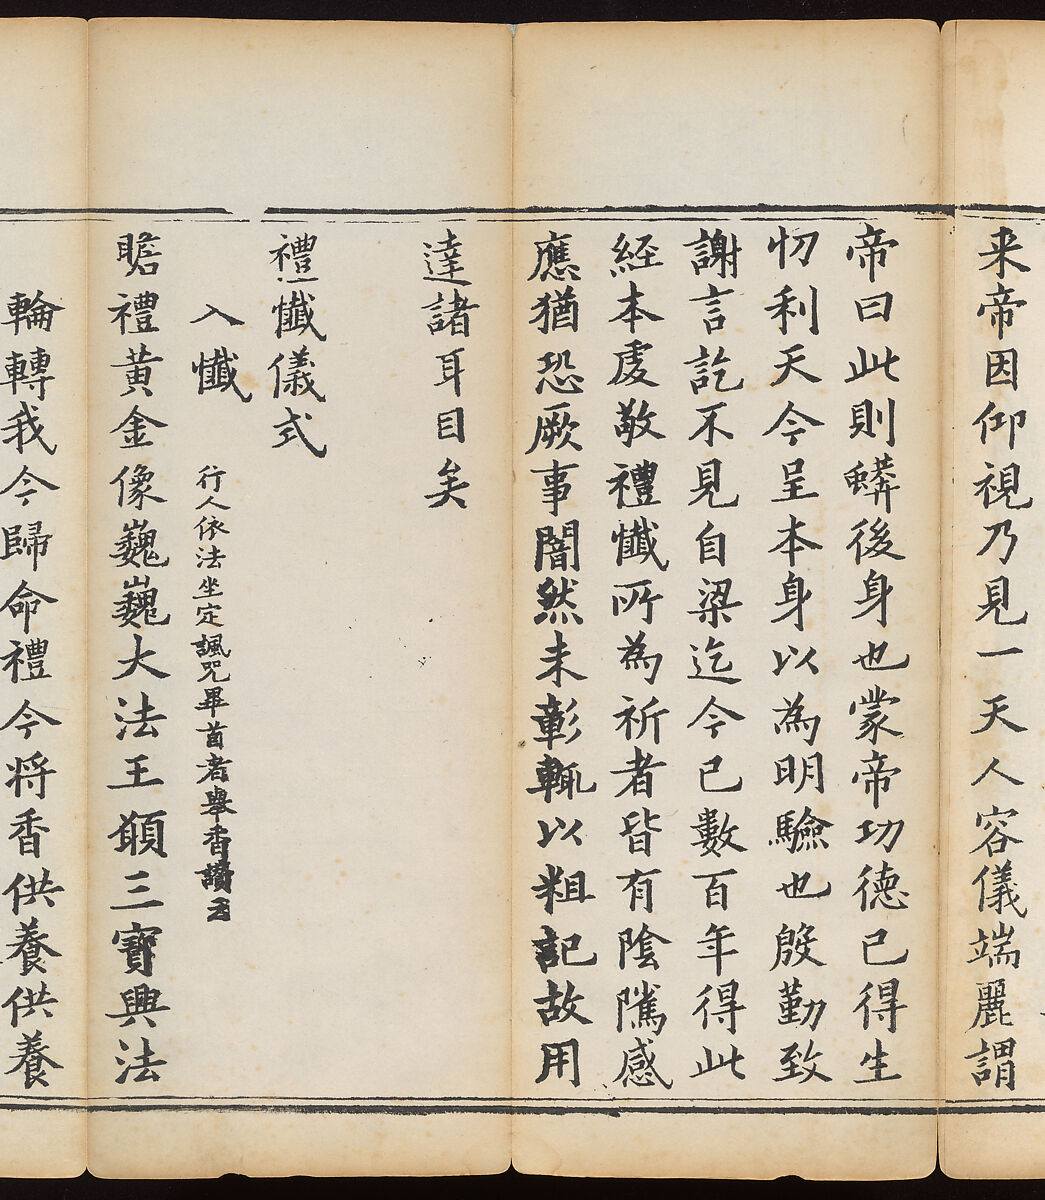 来帝因仰視乃見一天人容儀端麗謂
帝曰此則蟒後身也蒙帝功德已得生
忉利天今呈本身以為明驗也殷勤致
謝言訖不見自梁迄今已數百年得此
經本虔敬禮懺所為祈者皆有陰隲感
應猶恐厥事闇然未彰輒以粗記故用
達諸耳目矣
禮懺儀式
入懺 行人依法坐定諷咒畢首者舉香讚云
瞻禮黃金像巍巍大法王願三寶興法
輪轉我今歸命禮今将香供養供養